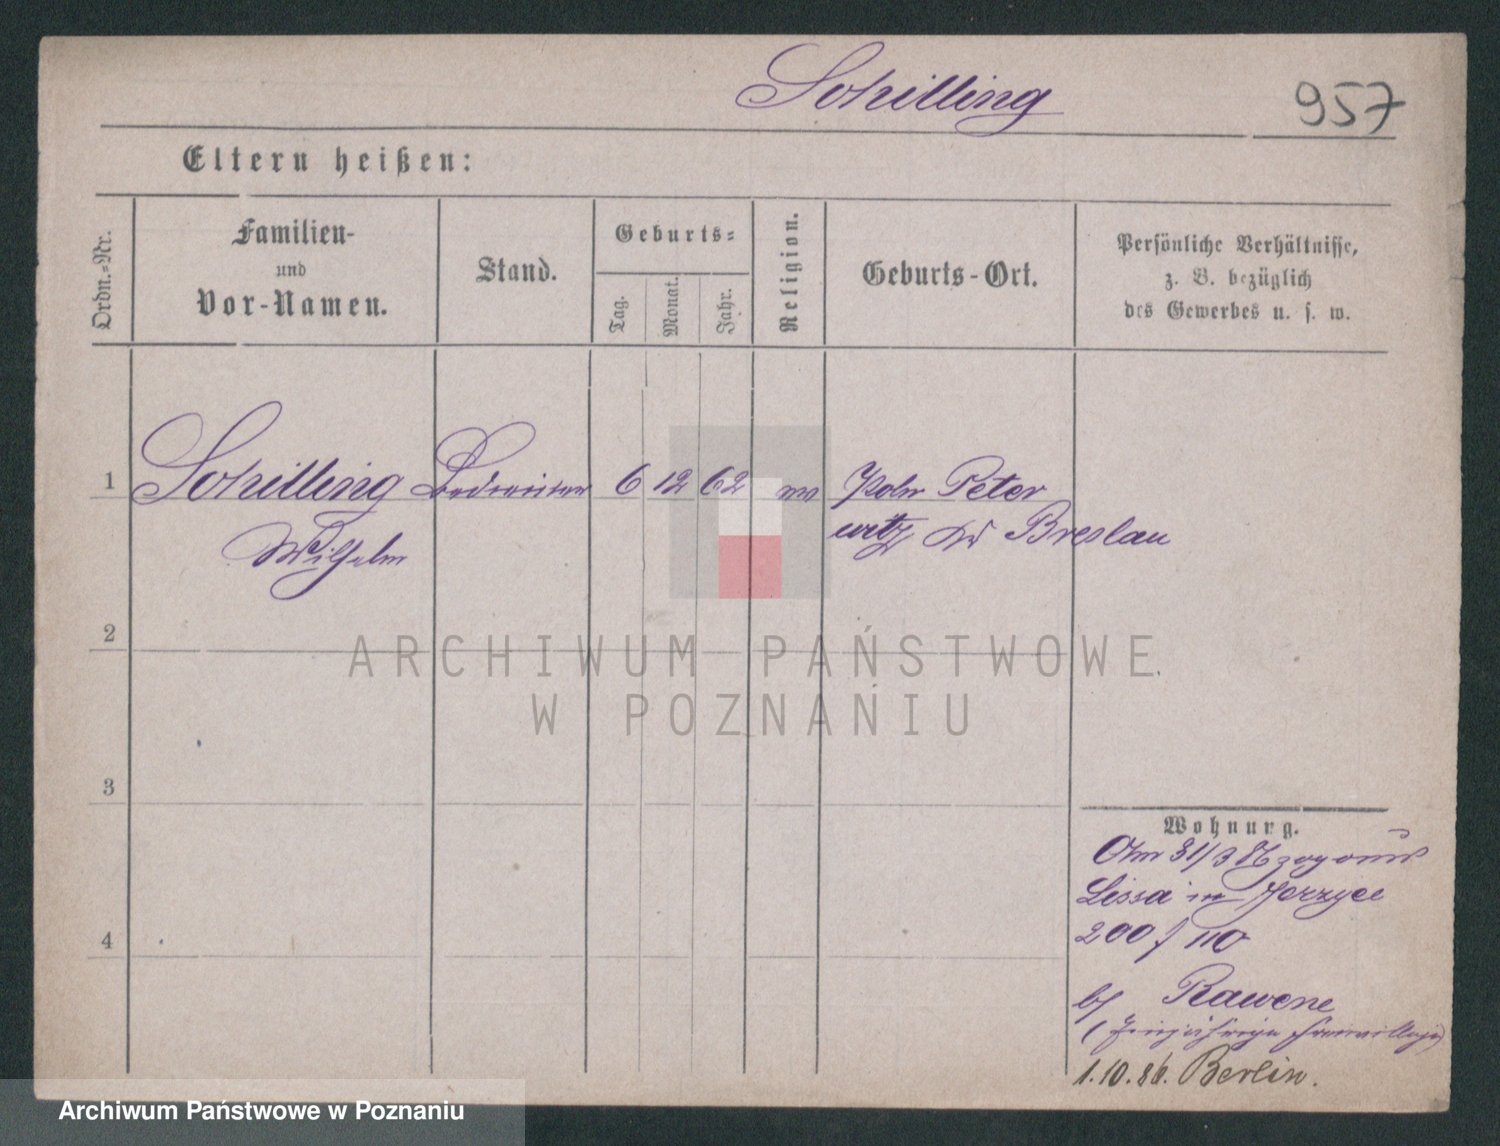 Schilling
957
Eltern heißen:
Ordn.=Nr.
Familien-
und
Vor-Namen.
Stand.
Geburts=
Tag.
Monat.
Jahr.
Religion.
Geburts-Ort.
Persönliche Verhältnisse,
z. B. bezüglich
des Gewerbes u. s. w.
1 Schilling 6 12 62 ev Poln Peter
Wilhelm
witz Breslau
2
3
4
Wohnung.
31/3 aus
Lissa in Jerzyce
200 / 110
b/ Rawene
(Einjährige Freiwillige)
1.10.86. Berlin.
ARCHIWUM PAŃSTWOWE
W POZNANIU
Archiwum Państwowe w Poznaniu